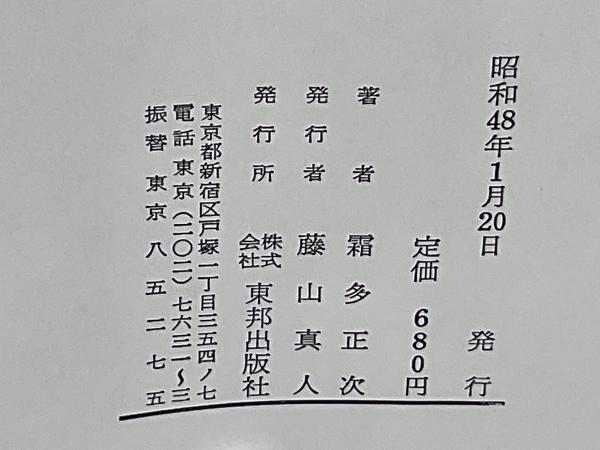 昭和48年1月20日 発行
定価 680円
著者 霜多正次
発行者 藤山真人
発行所 株式会社 東邦出版社
東京都新宿区戸塚一丁目三五四ノ七
電話東京(二〇二)七六三一〜三
振替東京八五二七五